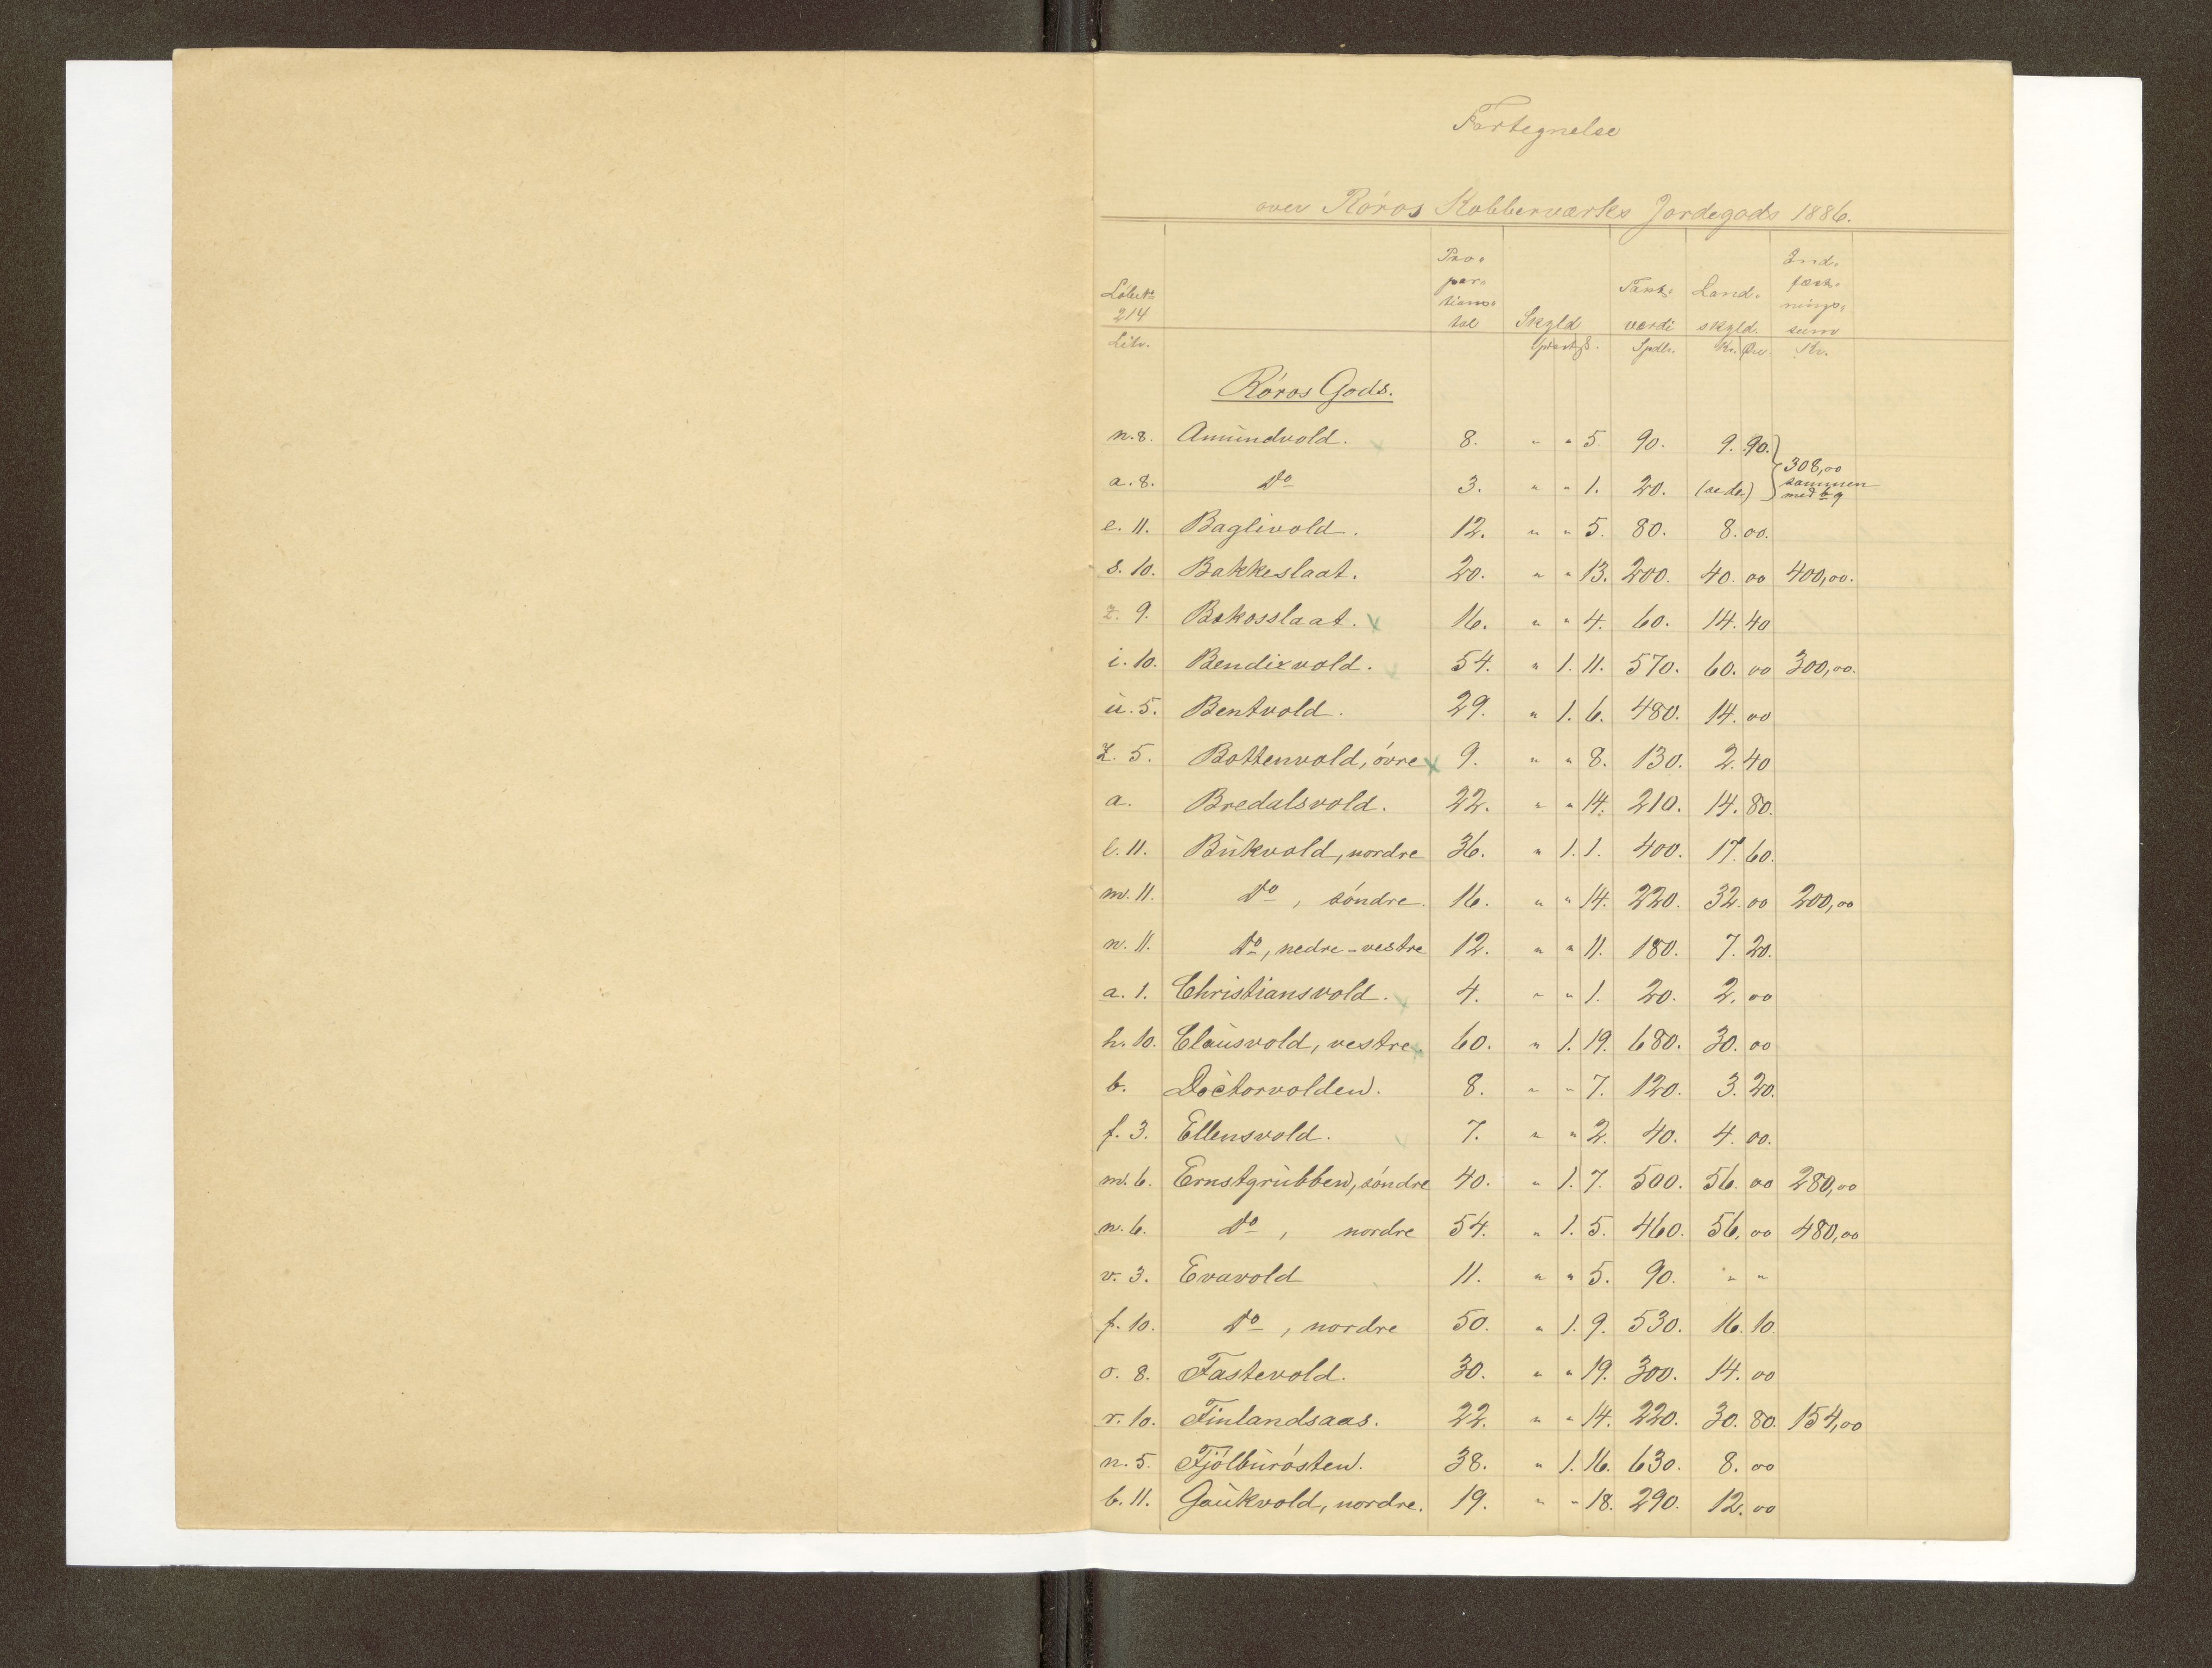 Fortegnelse
over Röros Kobberværks Jordegods 1886.
Löbe№ 214 Litr. Pro- por- tions- tal Skyld Taxt- værdi Spdlr. Land- skyld. Kr. Öre Ind- fæst- nings- sum Kr.
Röros Gods.
n. 8. Amundvold. 8. " " 5. 90. 9. 90. } 308,00 sammen med b 9
a. 8. Do 3. " " 1. 20. (öde)
e. 11. Baglivold. 12. " " 5. 80. 8. 00.
s. 10. Bakkeslaat. 20. " " 13. 200. 40. 00 400,00.
z. 9. Bekosslaat. x 16. " " 4. 60. 14. 40
i. 10. Bendixvold. 54. " 1. 11. 570. 60. 00 300,00.
u. 5. Bentvold. 29. " 1. 6. 480. 14. 00
z. 5. Bottenvold, övre x 9. " " 8. 130. 2. 40
a. Bredalsvold. 22. " " 14. 210. 14. 80.
l. 11. Bukvold, nordre 36. " 1. 1. 400. 17. 60.
m. 11. Do, söndre. 16. " " 14. 220. 32. 00 200,00
n. 11. Do, nedre-vestre 12. " " 11. 180. 7. 20.
a. 1. Christiansvold. x 4. " " 1. 20. 2. 00
h. 10. Clausvold, vestre. x 60. " 1. 19. 680. 30. 00
b. Doctorvolden. 8. " " 7. 120. 3. 20.
f. 3. Ellensvold. 7. " " 2. 40. 4. 00.
m. 6. Ernstgrubben, söndre 40. " 1. 7. 500. 56. 00 280,00
n. 6. Do, nordre 54. " 1. 5. 460. 56. 00 480,00
v. 3. Evavold 11. " " 5. 90. " "
f. 10. Do, nordre 50. " 1. 9. 530. 16. 10.
o. 8. Fastevold. 30. " " 19. 300. 14. 00
r. 10. Finlandsaas. 22. " " 14. 220. 30. 80. 154,00
n. 5. Fjölburösten. 38. " 1. 16. 630. 8. 00
b. 11. Gaukvold, nordre. 19. " " 18. 290. 12. 00